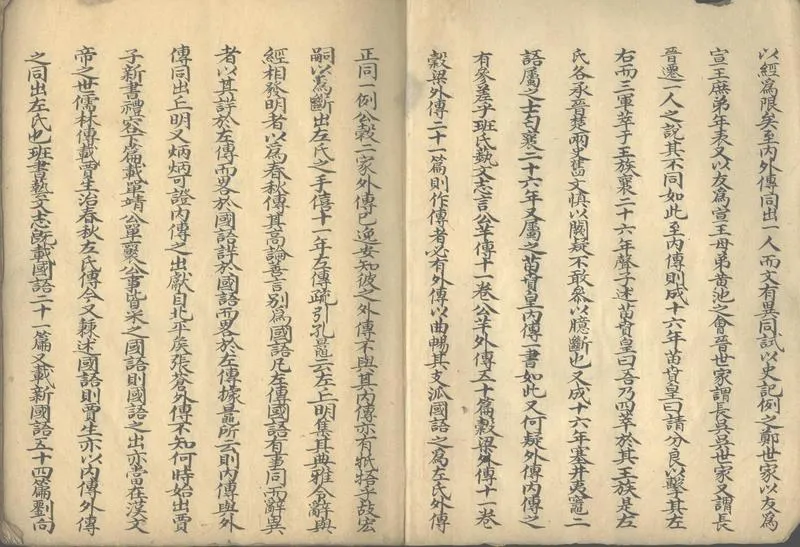 以經為限矣至內外傳同出一人而文有異同試以史記例之鄭世家以友為
宣王庶弟年表又以友為宣王母弟黃池之會晉世家謂長吳吳世家又謂長
晉遷一人之說其不同如此至內傳則成十六年苗賁皇曰請分良以擊其左
右而三軍萃于王族襄二十六年聲子述苗賁皇曰吾乃四萃於其王族是左
氏各承晉楚兩史舊文慎以闕疑不敢參以臆斷也又成十六年塞井夷竈二
語屬之士匄襄二十六年又屬之苗賁皇內傳一書如此又何疑外傳內傳之
有參差乎班氏藝文志言公羊傳十一卷公羊外傳五十篇穀梁外傳十一卷
穀梁外傳二十一篇則作傳者必有外傳以曲暢其支派國語之為左氏外傳
正同一例公穀二家外傳已逸安知彼之外傳不與其內傳亦有牴牾乎故宏
嗣以為斷出左氏之手僖十一年左傳疏引孔鼂云左丘明集其典雅令辭與
經相發明者以為春秋傳其高論善言別為國語凡左傳國語有事同而辭異
者以其詳於左傳而畧於國語詳於國語而畧於左傳據鼂所云則內傳與外
傳同出丘明又炳炳可證內傳之出獻自北平矦張蒼外傳不知何時始出賈
子新書禮容下篇載單靖公單襄公事皆采之國語則國語之出亦當在漢文
帝之世儒林傳載賈生治春秋左氏傳今又兼述國語則賈生亦以內傳外傳
之同出左氏也班書藝文志既載國語二十一篇又載新國語五十四篇劉向